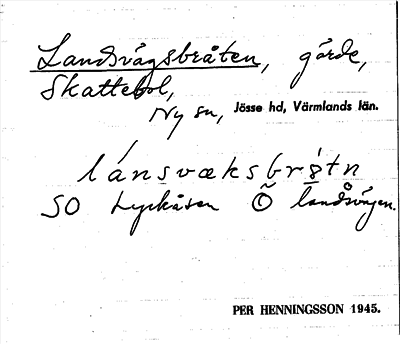 Landsvägsbråten, gärde,
Skattebol,
Ny sn, Jösse hd, Värmlands län.
lánsvæksbrǫ̊tn
SO Lyckåsen Ö landsvägen.
PER HENNINGSSON 1945.